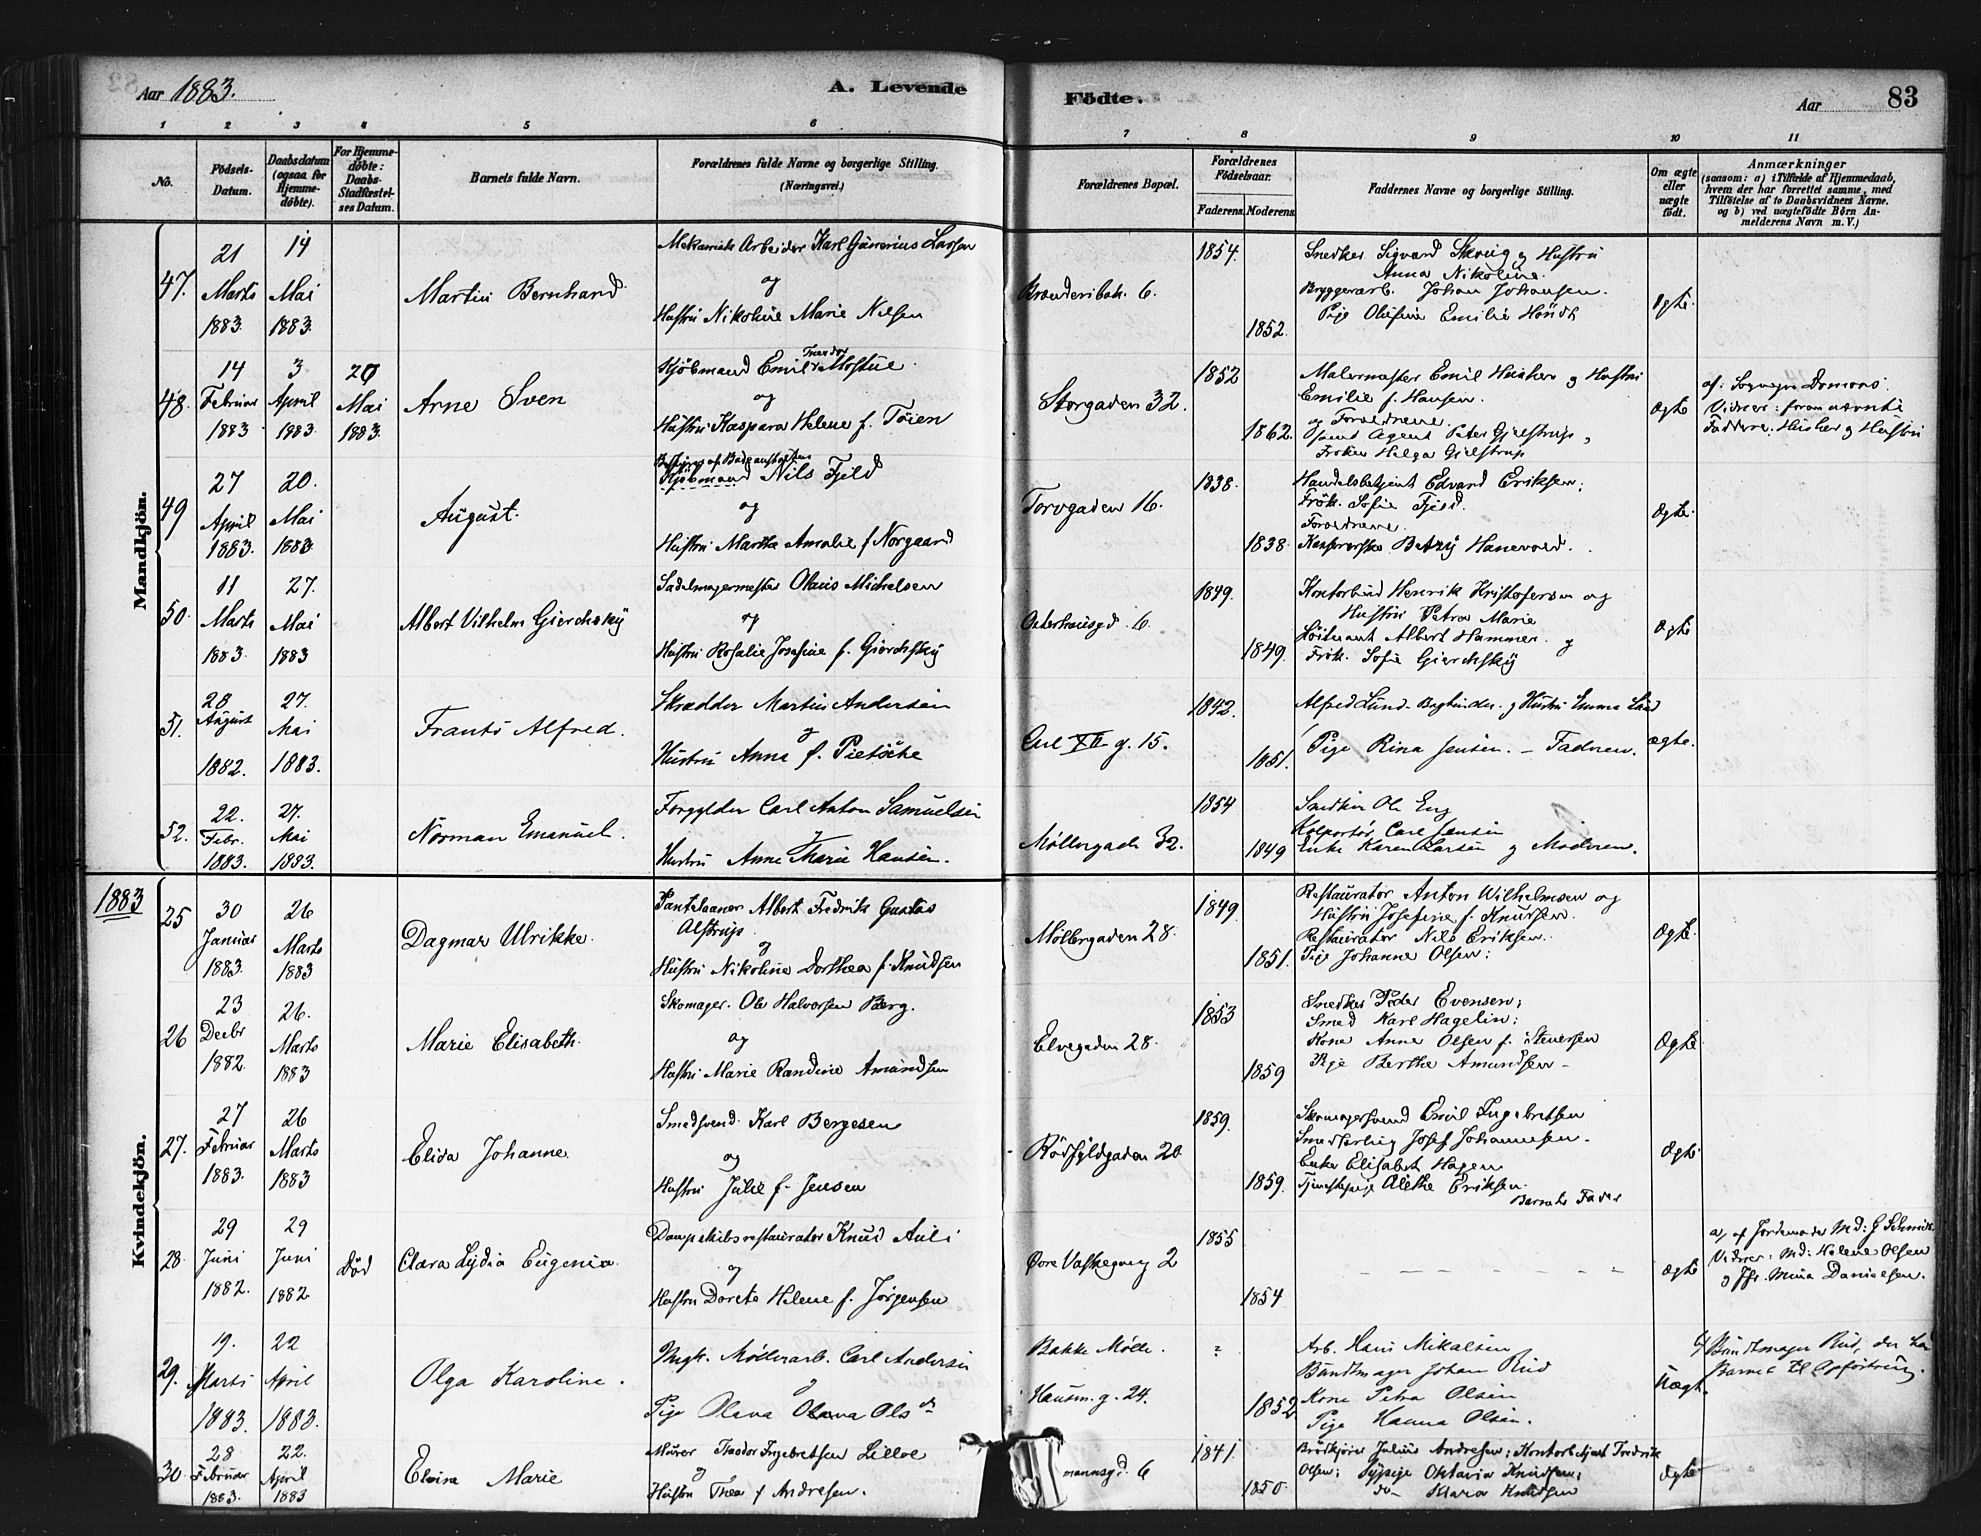 Aar 1883.
A. Levende Födte.
Aar
83
1 2 3 4 5 6 7 8 9 10 11
No.
Födsels-Datum.
Daabsdatum (ogsaa for Hjemmedöbte).
For Hjemmedöbte: Daabs-Stadfæstelses Datum.
Barnets fulde Navn.
Forældrenes fulde Navne og borgerlige Stilling. (Næringsvei.)
Forældrenes Bopæl.
Forældrenes Födselsaar.
Faderens. Moderens.
Faddernes Navne og borgerlige Stilling.
Om ægte eller uægte födt.
Anmærkninger
(saasom: a) i Tilfælde af Hjemmedaab,
hvem der har forrettet samme, med
Tilföielse af to Daabsvidners Navne.
og b) ved uægtefödte Börn An-
melderens Navn m. V.)
Mandkjön.
47. 21 Marts 1883. 14 Mai 1883.
Martin Bernhard
Mekanisk Arbeider Karl Gunerius Larsen
og
Hustru Nikoline Marie Nilsen
6.
1854. 1852.
Snedker Sigvard Skoug og Hustru
Anna Nikoline.
Bryggerarb. Johan Johansen.
Pige Olefine Emilie
Ægte.
48. 14 Februar 1883 3 April 1883 20 Mai 1883.
Arne Sven
Kjöbmand Emil Theodor Mostue
og
Hustru Kaspara Helene f. Töien
Storgaden 32.
1852 1862.
Malermester Emil og Hustru
Emilie f. Hansen.
og Forældrene.
samt Agent Peter Gjelstrup,
Fröken Helga Gjelstrup
Ægte
af: Sogneprest
Vidner: forannævnte
Faddere: og Hustru
49 27 April 1883. 20. Mai 1883.
August.
Bestyrer af Badeanstalten
Kjöbmand Nils Fjeld
og
Hustru Marthe Amalie f. Norgaard
Torvgaden 16.
1838. 1838.
Handelsbetjent Edvard Eriksen;
Frök. Sofie Fjeld.
Forældrene.
Betzy Hanevold.
Ægte.
50. 11 Marts 1883. 27. Mai 1883
Albert Vilhelm Gierchsky
Sadelmagermester Olaus Michelsen
og
Hustru Rosalie Josefine f. Gierchsky
Osterhausgd. 6.
1849. 1849.
Kontorbud Henrik Kristofersen og
Hustru Petra Marie
Löitnant Albert Hammer og
Frök. Sofie Gierchsky
Ægte
51. 28 August 1882. 27. Mai 1883.
Frants Alfred.
Skrædder Martin Andersen
og
Hustru Anna f. Pietsche
Carl XII g. 15.
1842. 1851.
Alfred Lund Bogbinder og Hustru Emma Lund
Pige Rina Jensen. – Faderen.
ægte.
52. 22. Febr. 1883. 27. Mai 1883.
Norman Emanuel.
Forgylder Carl Anton Samuelsen
og
Hustru Anne Marie Hansen.
Möllergade 32.
1854 1849
Snedker Ole Eng
Kolportör Carl Jensen
Enke Karen Larsen og Moderen.
1883
Kvindekjön.
25 30 Januar 1883. 26 Marts 1883
Dagmar Ulrikke.
Pantelaaner Albert Fredrik Gustav
Alstrup.
og
Hustru Nikoline Dorthea f. Knudsen
Möllergaden 28.
1849. 1851.
Restauratör Anton Wilhelmsen og
Hustru Josefine f. Knudsen.
Restauratör Nils Eriksen.
Pige Johanne Olsen:
Ægte.
26 23 Decbr 1882. 26. Marts 1883
Marie Elisabeth.
Skomager. Ole Halvorsen Berg.
og
Hustru Marie Randine Amundsen
Elvegaden 28.
1853 1859
Snedker Peder Evensen;
Smed Karl Hagelin:
Kone Anne Olsen f. Stenersen
Pige Berthe Amundsen –
Ægte
27. 27 Februar 1883. 26 Marts 1883
Elida Johanne
Smedsvend. Karl Bergesen
og
Hustru Julie f. Jensen
Rödfyldgaden 20
1859. 1859.
Skomagersvend Emil Ingebretsen
Smedlærling Josef Johannesen.
Enke Elisabet Hagen
Tjenestepige Alethe Eriksen.
Barnets Fader
Ægte
28. 29 Juni 1882. 29 Juni 1882 Död
Clara Lydia Eugenia.
Dampskibsrestauratör Knud Auli
og
Hustru Dorete Helene f. Jörgensen
Övre Vaskegang 2
1855 1854
– – – – – – –
Ægte
a, af Jordemoder Md: G Schmidt.
Vidner: Md: Helene Olsen
og Jfr. Mina Danielsen.
29. 19. Marts 1883. 22 April 1883.
Olga Karoline.
Ungk. Möllerarb. Carl Andersen
og
Pige Olava Olsdr
Bakke Mölle.
Hausm. g. 24.
1852
Arb. Hans Mikalsen
Buntmager Johan Rud
Kone Petra Olsen
Pige Hanna Olsen.
Uægt.
b) Buntmager Rud, der har
Barnet til Opfostring.
30. 28 Februar 1883. 22. April 1883
Elvina Marie
Murer Theodor Ingebretsen Lilloe
og
Hustru Thea f Andresen.
mannsgd. 6
1841. 1850.
Brödkjörer Julius Andresen; Kontorbetjent Fredrik
Olsen; Sypige Oktavia Knudsen;
do – Klara Knudsen
Ægte